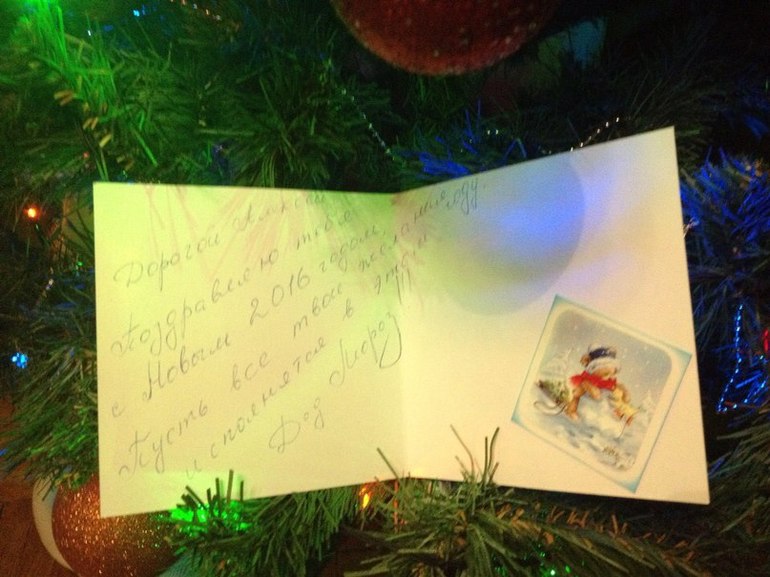 Дорогой
Поздравляю тебя
с Новым 2016 годом,
Пусть все твои желания
исполнятся в этом году.
Дед Мороз!!!